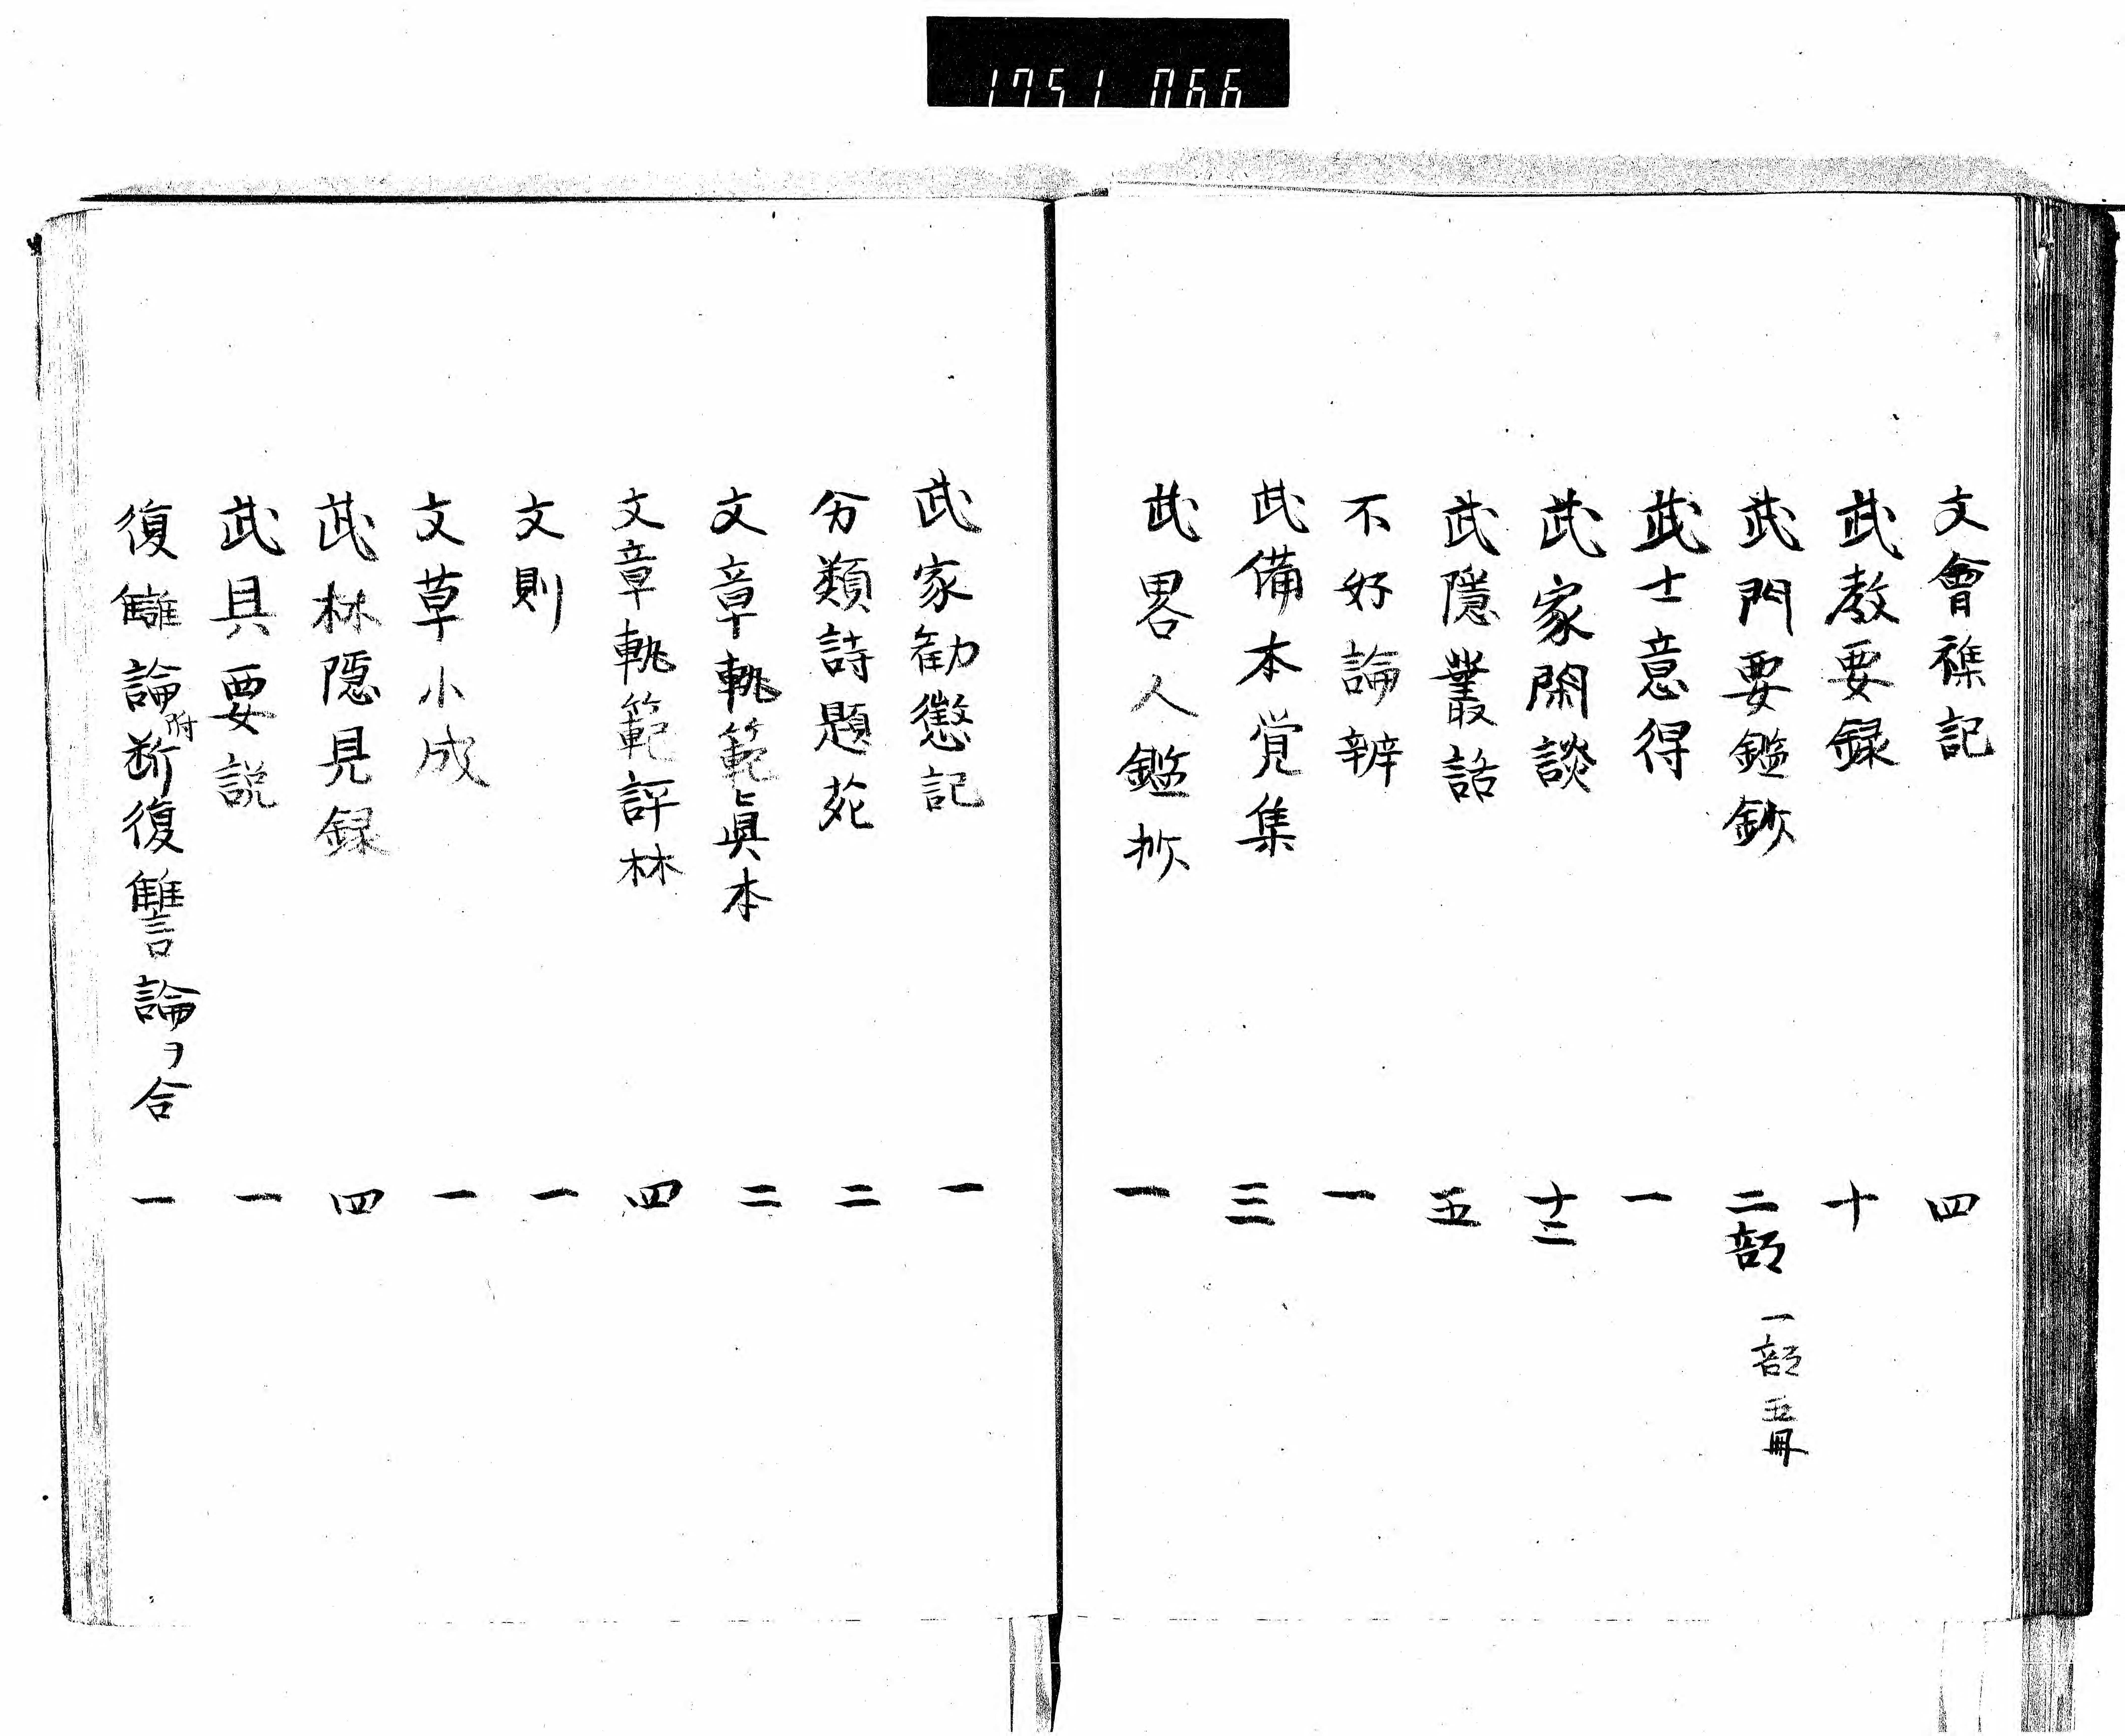 1751 066
文會襍記 四
武教要録 十
武門要鑑鈔 二部 一部五冊
武士意得 一
武家閑談 十二
武隱叢話 五
不好論辨 一
武備本覚集 三
武畧人鑑抄 一
武家勧懲記 一
分類詩題苑 二
文章軌範眞本 二
文章軌範評林 四
文則 一
文草小成 一
武林隠見録 四
武具要説 一
復讎論附断復讐論ヲ合 一